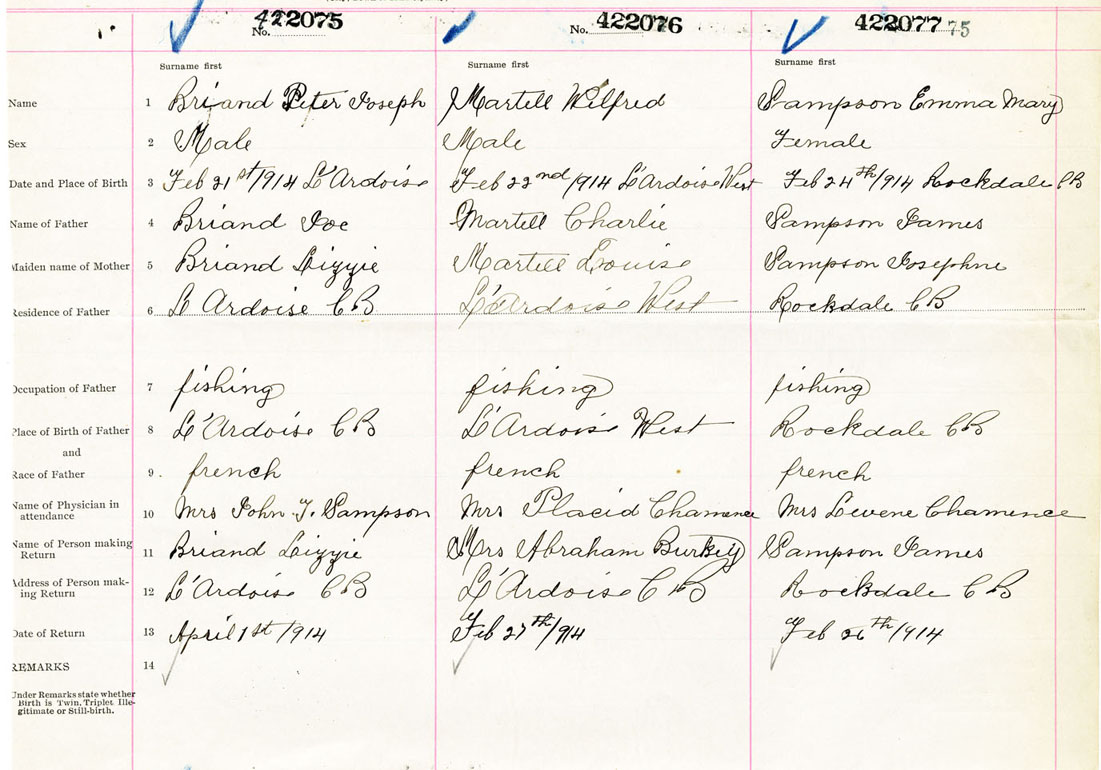 422075 422076 422077 75
No. No.
Surname first Surname first Surname first
Name 1 Briand Peter Joseph Martell Wilfred Sampson Emma Mary
Sex 2 Male Male Female
Date and Place of Birth 3 Feb 21st/914 L'Ardoise Feb 22nd/914 L'Ardoise West Feb 24th/914 Rockdale CB
Name of Father 4 Briand Joe Martell Charlie Sampson James
Maiden name of Mother 5 Briand Lizzie Martell Louise Sampson Josephne
Residence of Father 6 L'Ardoise CB L'Ardoise West Rockdale CB
Occupation of Father 7 fishing fishing fishing
Place of Birth of Father 8 L'Ardoise CB L'Ardoise West Rockdale CB
and
Race of Father 9 french french french
Name of Physician in
attendance 10 Mrs John T. Sampson Mrs Placid Mrs
Name of Person making
Return 11 Briand Lizzie Mrs Abraham Sampson James
Address of Person mak-
ing Return 12 L'Ardoise CB L'Ardoise CB Rockdale CB
Date of Return 13 April 1st/914 Feb 27th/914 Feb 26th/914
REMARKS 14
Under Remarks state whether
Birth is Twin, Triplet Ille-
gitimate or Still-birth.